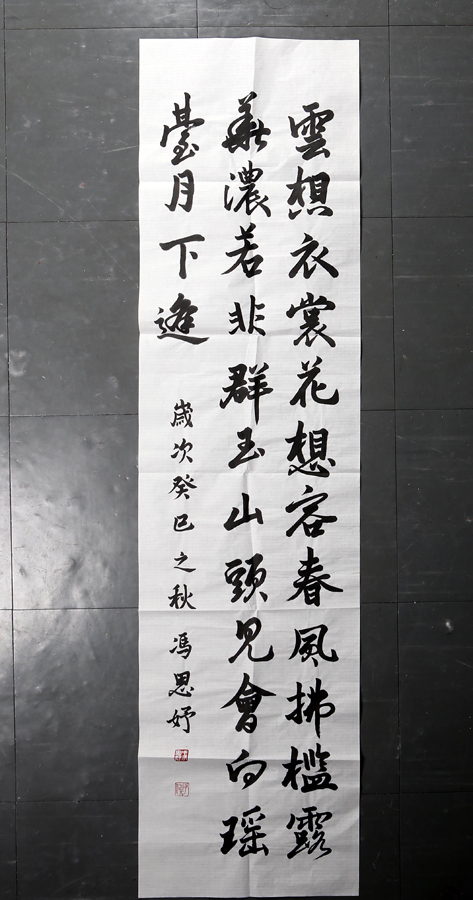 雲想衣裳花想容春風拂檻露
華濃若非群玉山頭見會向瑶
臺月下逢
歲次癸巳之秋 馮思妤